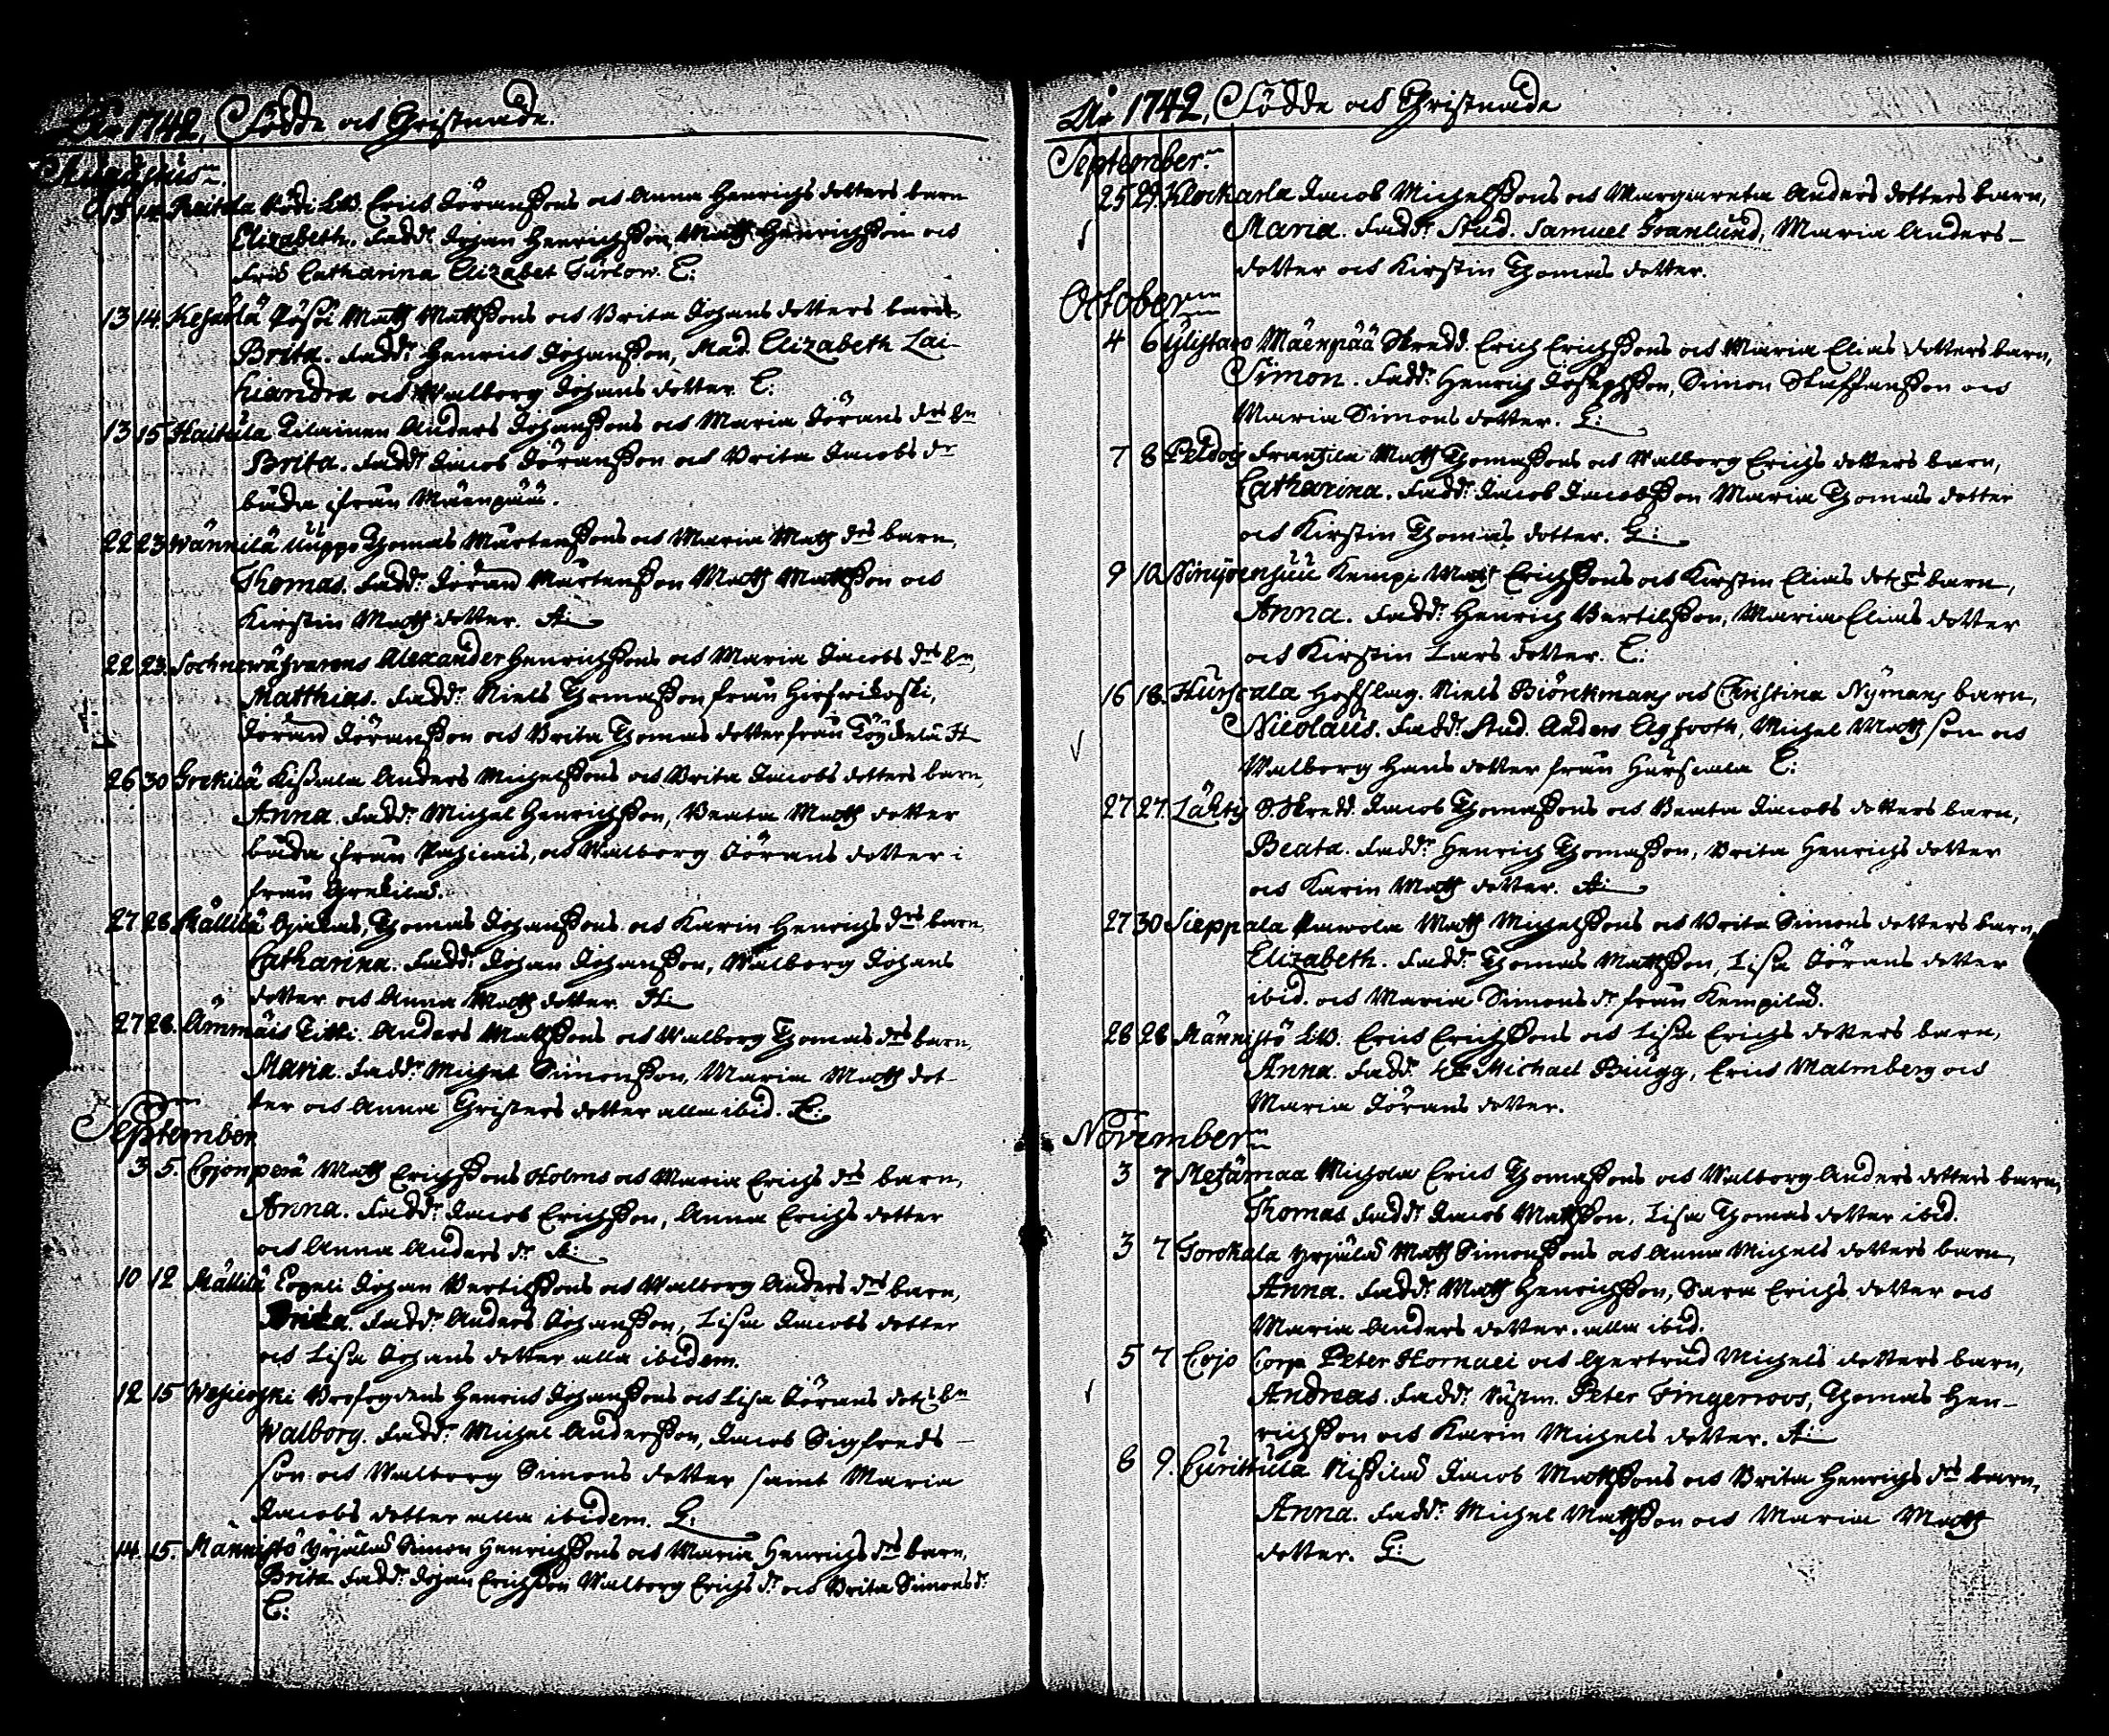 År 1742, Födde och Christnade.
Augustus
13 14 Lill. Erich Jöransons och Anna Henrichs dotters barn
Elizabeth. Fadd:r Johan Henrichsson, Matth Henrichsson och
Catharina Elizabet
13 14 Matth Mattsons och Brita Johans dotters barn,
Brita. Fadd:r Henrich Johansson, Mad. Elizabeth Lai-
kiandra och Walborg Johans dotter. E:
13 15 Haitula Tilainen Anders Johansons och Maria Jörans d:rs b:n
Brita. Fadd:r Jacob Jöransson och Brita Jacobs d:r
båda ifrån Mäenpää.
22 23 Wännilä Uuppo Thomas Mårtensons och Maria Math d:rs barn,
Thomas. Fadd:r Jöran Mårtensson Matth Mattsson och
Kirstin Math dotter. A:
22 23. Alexander Henrichsons och Maria Jacobs d:rs b:n,
Matthias. Fadd:r Niels Thomasson från
Jöran Jöransson och Brita Thomas dotter från
26 30 Grekilä Anders Michelsons och Brita Jacobs dotters barn,
Anna. Fadd:r Michel Henrichsson, Beata Math dotter
båda ifrån och Walborg Jörans dotter i
från
27 28 Mällilä Ojalas, Thomas Johansons och Karin Henrichs d:rs barn,
Catharina. Fadd:r Johan Johansson, Walborg Johans
dotter och Anna Math dotter.
27 28. Ämmäis Titti Anders Mattsons och Walborg Thomas d:rs barn,
Maria. Fadd:r Michel Simonsson, Maria Math dot-
ter och Anna Christers dotter alla ibid. E:
September
3 5. Cojonperä Math Erichsons Holms och Maria Erichs d:rs barn,
Anna. Fadd:r Jacob Erichsson, Anna Erichs dotter
och Anna Anders d:r A:
10 12 Mällilä Johan Bertilsons och Walborg Anders d:rs barn,
Brita. Fadd:r Anders Johansson, Lisa Jacobs dotter
och Lisa Johans dotter alla ibidem.
12 15 Henrich Johansons och Lisa Jörans dot:rs b:n
Walborg. Fadd:r Michel Andersson, Jacob Sigfreds
son och Walborg Simons dotter samt Maria
Jacobs dotter alla ibidem. G:
14. 15. Männistö Yrjälas Simon Henrichsons och Maria Henrichs d:rs barn,
Brita Fadd:r Johan Erichsson Walborg Erichs d:r och Brita Simons d:r
E:
År 1742, Födde och Christnade
September
25 29. Klockarla Jacob Michelsons och Margareta Anders dotters barn,
Maria. Fadd:r Stud. Samuel Granlund, Maria Anders-
dotter och Kirstin Thomas dotter.
October
4 6 Ylistaro Mäenpää Skredd. Erich Erichsons och Maria Elias dotters barn,
Simon. Fadd:r Henrich Josephsson, Simon Staffansson och
Maria Simons dotter. E:
7 8 Frantzila Math Thomasons och Walborg Erichs dotters barn,
Catharina. Fadd:r Jacob Jacobsson Maria Thomas dotter
och Kirstin Thomas dotter. G:
9 10. Kempe Math Erichsons och Kirstin Elias dot:rs barn,
Anna. Fadd:r Henrich Bertilsson, Maria Elias dotter
och Kirstin Lars dotter. E:
16 18. Niels Biörckmans och Christina Nymans barn,
Nicolaus. Fadd:r Stud. Anders Michel Math son och
Walborg Hans dotter från E:
27 27. S.Skredd. Jacob Thomasons och Beata Jacobs dotters barn,
Beata. Fadd:r Henrich Thomasson, Brita Henrichs dotter
och Karin Math dotter. A:
27 30 Sieppala Pawola Math Michelsons och Brita Simons dotters barn,
Elizabeth. Fadd:r Thomas Mattsson, Lisa Jörans dotter
ibid. och Maria Simons d:r från Kempilas.
28 28 Männistö Erich Erichsons och Lisa Erichs dotters barn,
Anna. Fadd:r Michael Brugg, Erich Malmberg och
Maria Jörans dotter.
November
3 7 Metzämaa Michola Erich Thomasons och Walborg Anders dotters barn,
Thomas Fadd:r Jacob Mattsson, Lisa Thomas dotter ibid.
3 7 Gorckala Yrjälas Math Simonsons och Anna Michels dotters barn,
Anna. Fadd:r Math Henrichsson, Sara Erichs dotter och
Maria Anders dotter. alla ibid.
5 7 Cojo Corp. Peter Hornaei och Gertrud Michels dotters barn,
Andreas. Fadd:r Peter Fingerroos, Thomas Hen-
richsson och Karin Michels dotter. A:
8 9. Curittula Nissilas Jacob Mattsons och Brita Henrichs d:rs barn,
Anna. Fadd:r Michel Mattsson och Maria Math
dotter. G: